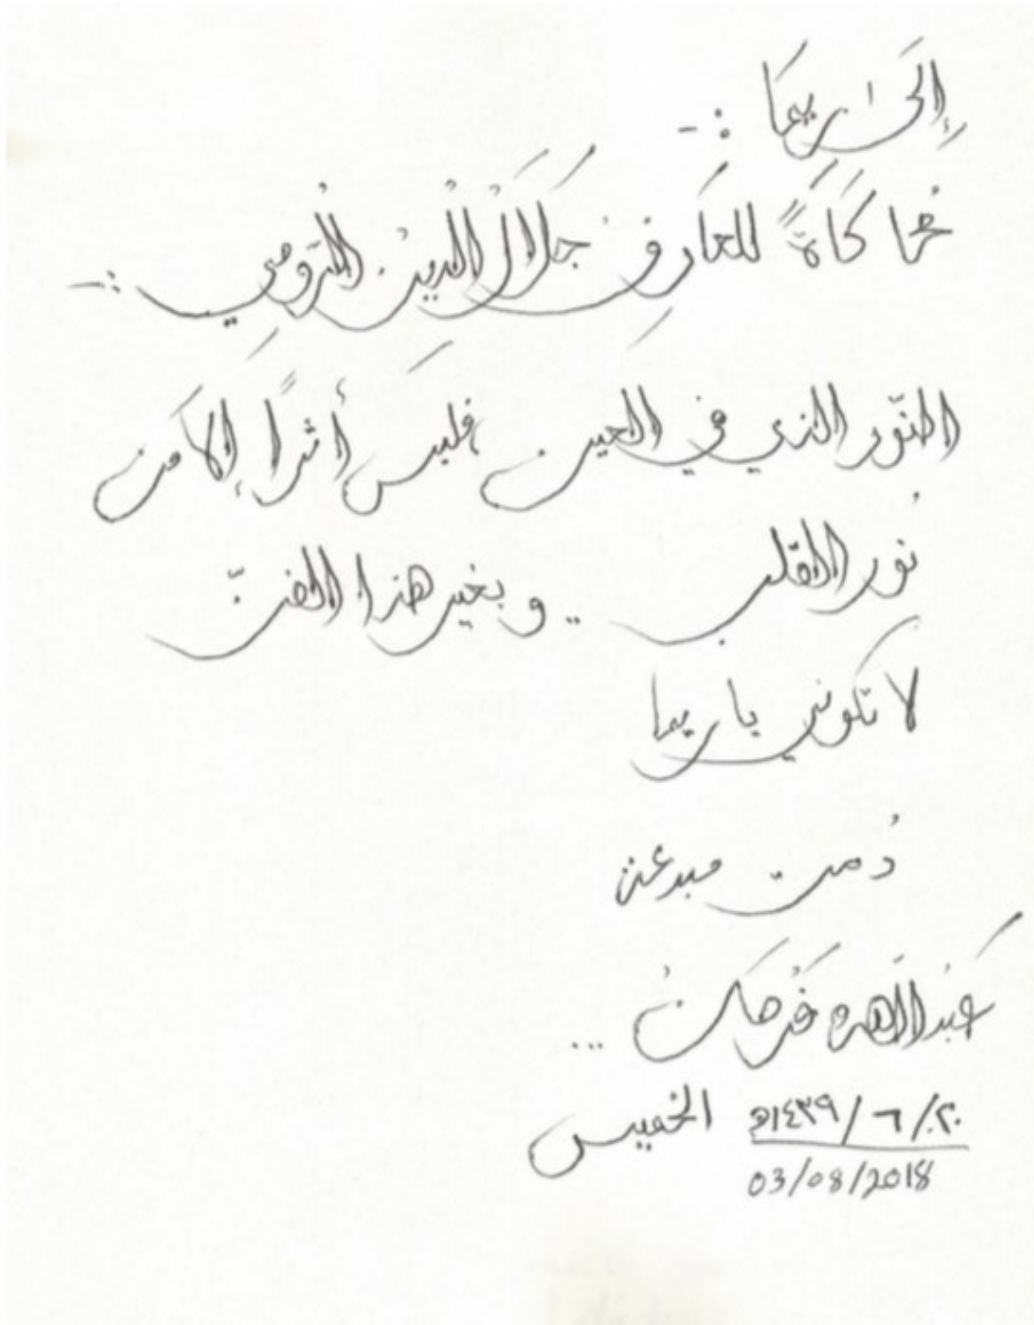 إلى ريما :-
محاكاةً للعارف جلال الدين الرّومي :-
النّور الذي في العين فليس أثراً إلا من
نور القلب .. وبغير هذا الفنّ
لا تكوني يا ريما
دُمت مبدعة
عبدالله فرحان ...
٢٠/٦/١٤٣٩هـ الخميس
03/08/2018